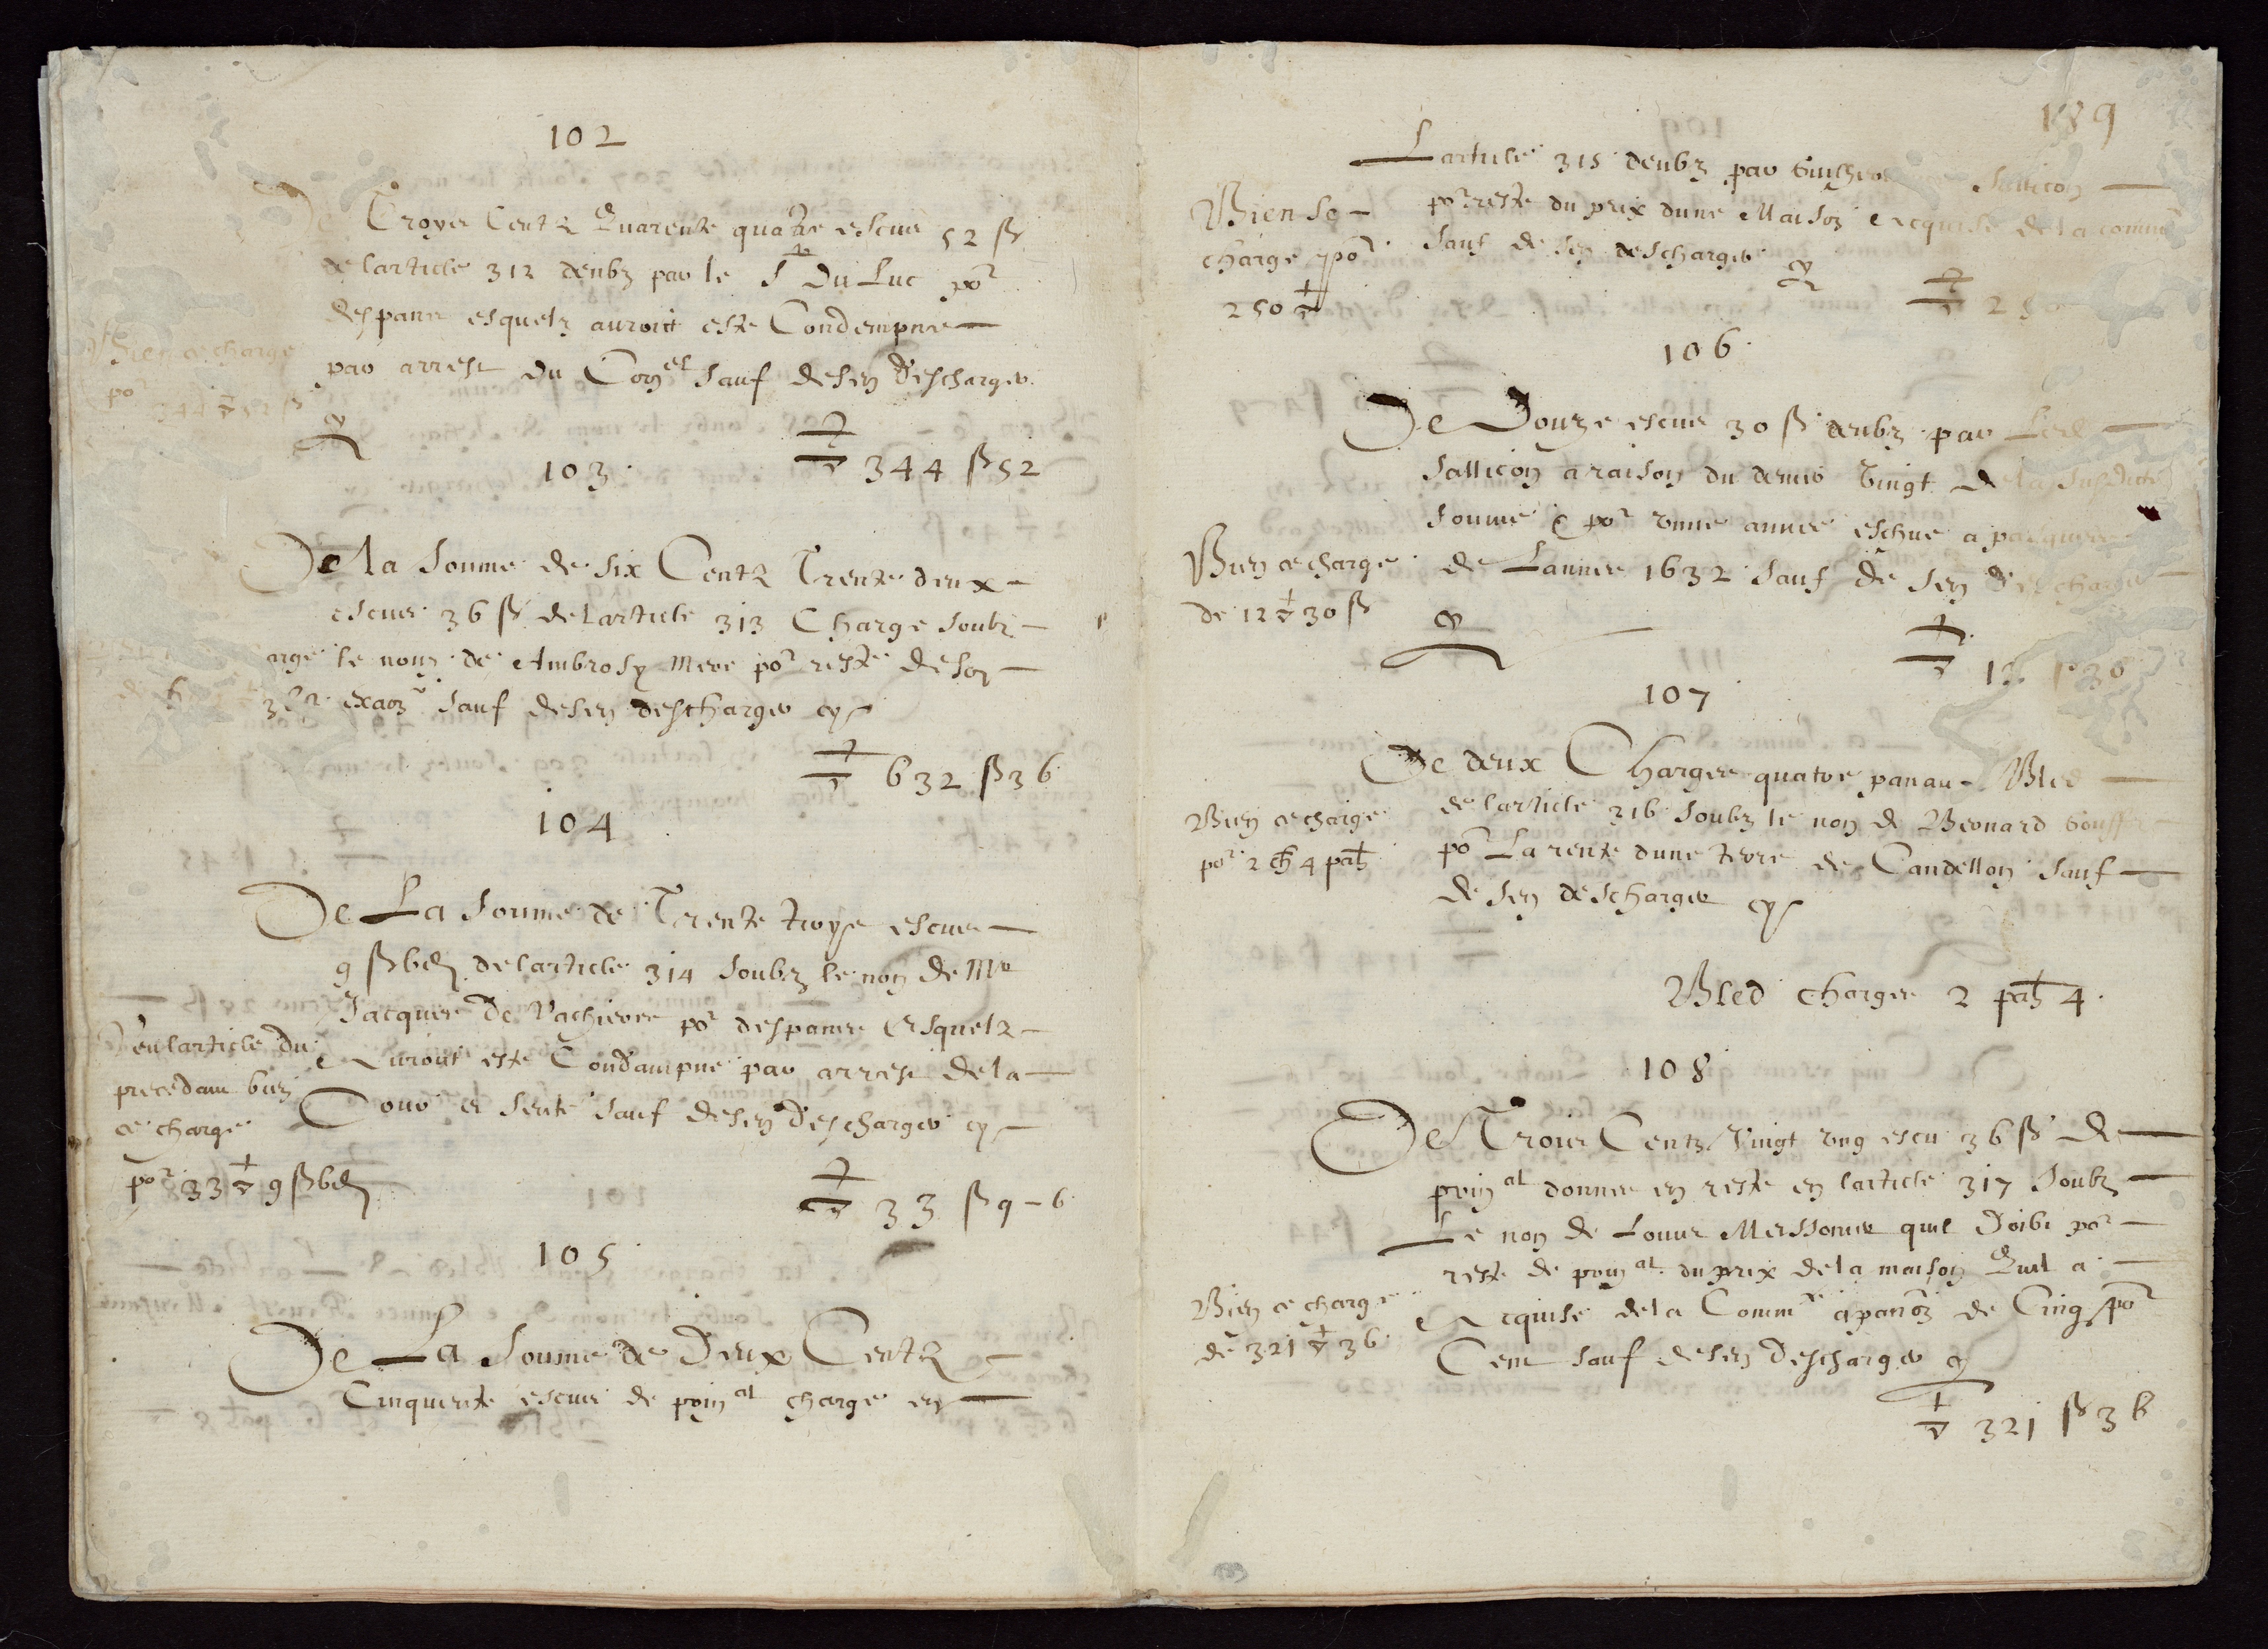 102
De Troyes Centz Quarente quatre escus 52 ß
de larticle 312 deubz par le Sr Du Luc por
despans esquelz auroict este Condempne
par arrest du Conel sauf desen descharger
Bien ce charge
por 344 52 ß
cy
344 ß 52
103
De la Somme de six Centz Trente deux
escus 36 ß de larticle 313 Charge soubz
le nom de Ambrosy Mere por reste de son
exaon sauf desen descharger cy
632 ß 36
104
De La somme de Trente troys escus
9 ß 6 d de larticle 314 soubz le non de Me
Jacques De Vachieres por despances Esquelz
Auroict este Condampne par arrest de la
Cour et sente sauf desen Descharger cy
en larticle du
precedant bien
ce charge
por 33 9 ß 6 d
33 ß 9 - 6
105
De La Somme de Deux Centz
Cinquente escus de prinal charge en
189
Larticle 315 deubz par Sallicon
por reste du prix dune Maison Acquise de la commté
sauf de sen descharger
cy
Bien se
charge por
250
250
106
De Douze escus 30 ß deubz par Led
Sallicon a raison du denier Vingt De la susdicte
somme & por vnne annee escheue a pasques
de Lannee 1632 sauf de sen descharger
Bien ce charge
de 12 30 ß
cy
12 ß 30
107
De deux Charges quatre panaux Bled
de larticle 316 soubz le non de Bernard
por La rente dune terre de Candellon sauf
de sen descharger cy
Bien ce charge
por 2 ch 4 pah
Bled charges 2 pah 4
108
De Trois Centz Vingt vng escu 36 ß de
prinal donnes en reste en larticle 317 soubz
Le non de Louis Meissonier quil Doibt por
reste de prinal du prix de la maison Quil a
Acquise de la Commté a pantion de Cinq por
Cent sauf desen Descharger cy
Bien ce charge
de 321 36
321 ß 36